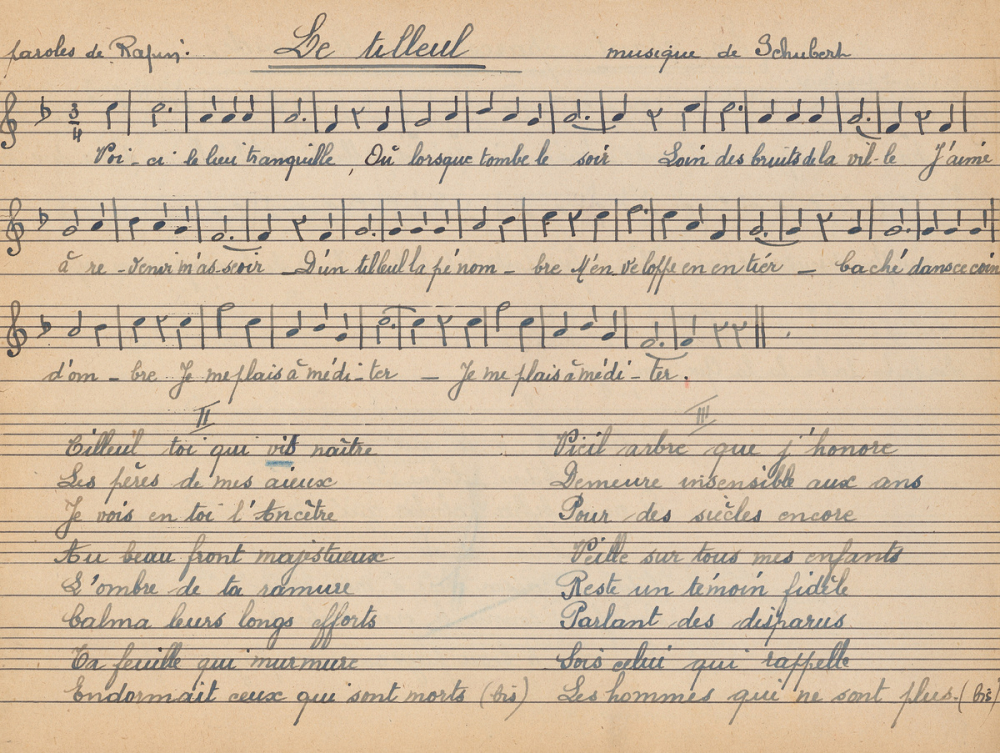 Le tilleul
paroles de Rafin: musique de Schubert
3/4
Voi-ci le lieu tranquille Où lorsque tombe le soir Loin des bruits de la vil-le J'aime
à re-venir m'as-seoir _ D'un tilleul la pé nom-bre M'en ve loppe en en tiér _ Caché dans ce coin
d'om-bre Je me plais à médi-ter _ Je me plais à médi-ter.
II
Tilleul toi qui vis naître
Les pères de mes aieux
Je vois en toi l'Ancêtre
Au beau front majestueux
L'ombre de ta ramure
Calma leurs longs efforts
Ta feuille qui murmure
Endormait ceux qui sont morts (bis)
III
Vieil arbre que j'honore
Demeure insensible aux ans
Pour des siècles encore
Veille sur tous mes enfants
Reste un témoin fidèle
Parlant des disparus
Sois celui qui rappelle
Les hommes qui ne sont plus. (bis)